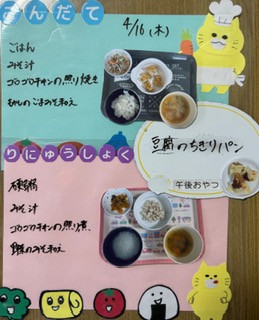 こんだて
4/16(木)
ごはん
みそ汁
コロコロチキンの照り焼き
もやしのごまみそ和え
豆腐のちぎりパン
午後おやつ
りにゅうしょく
みそ汁
コロコロチキンの照り煮